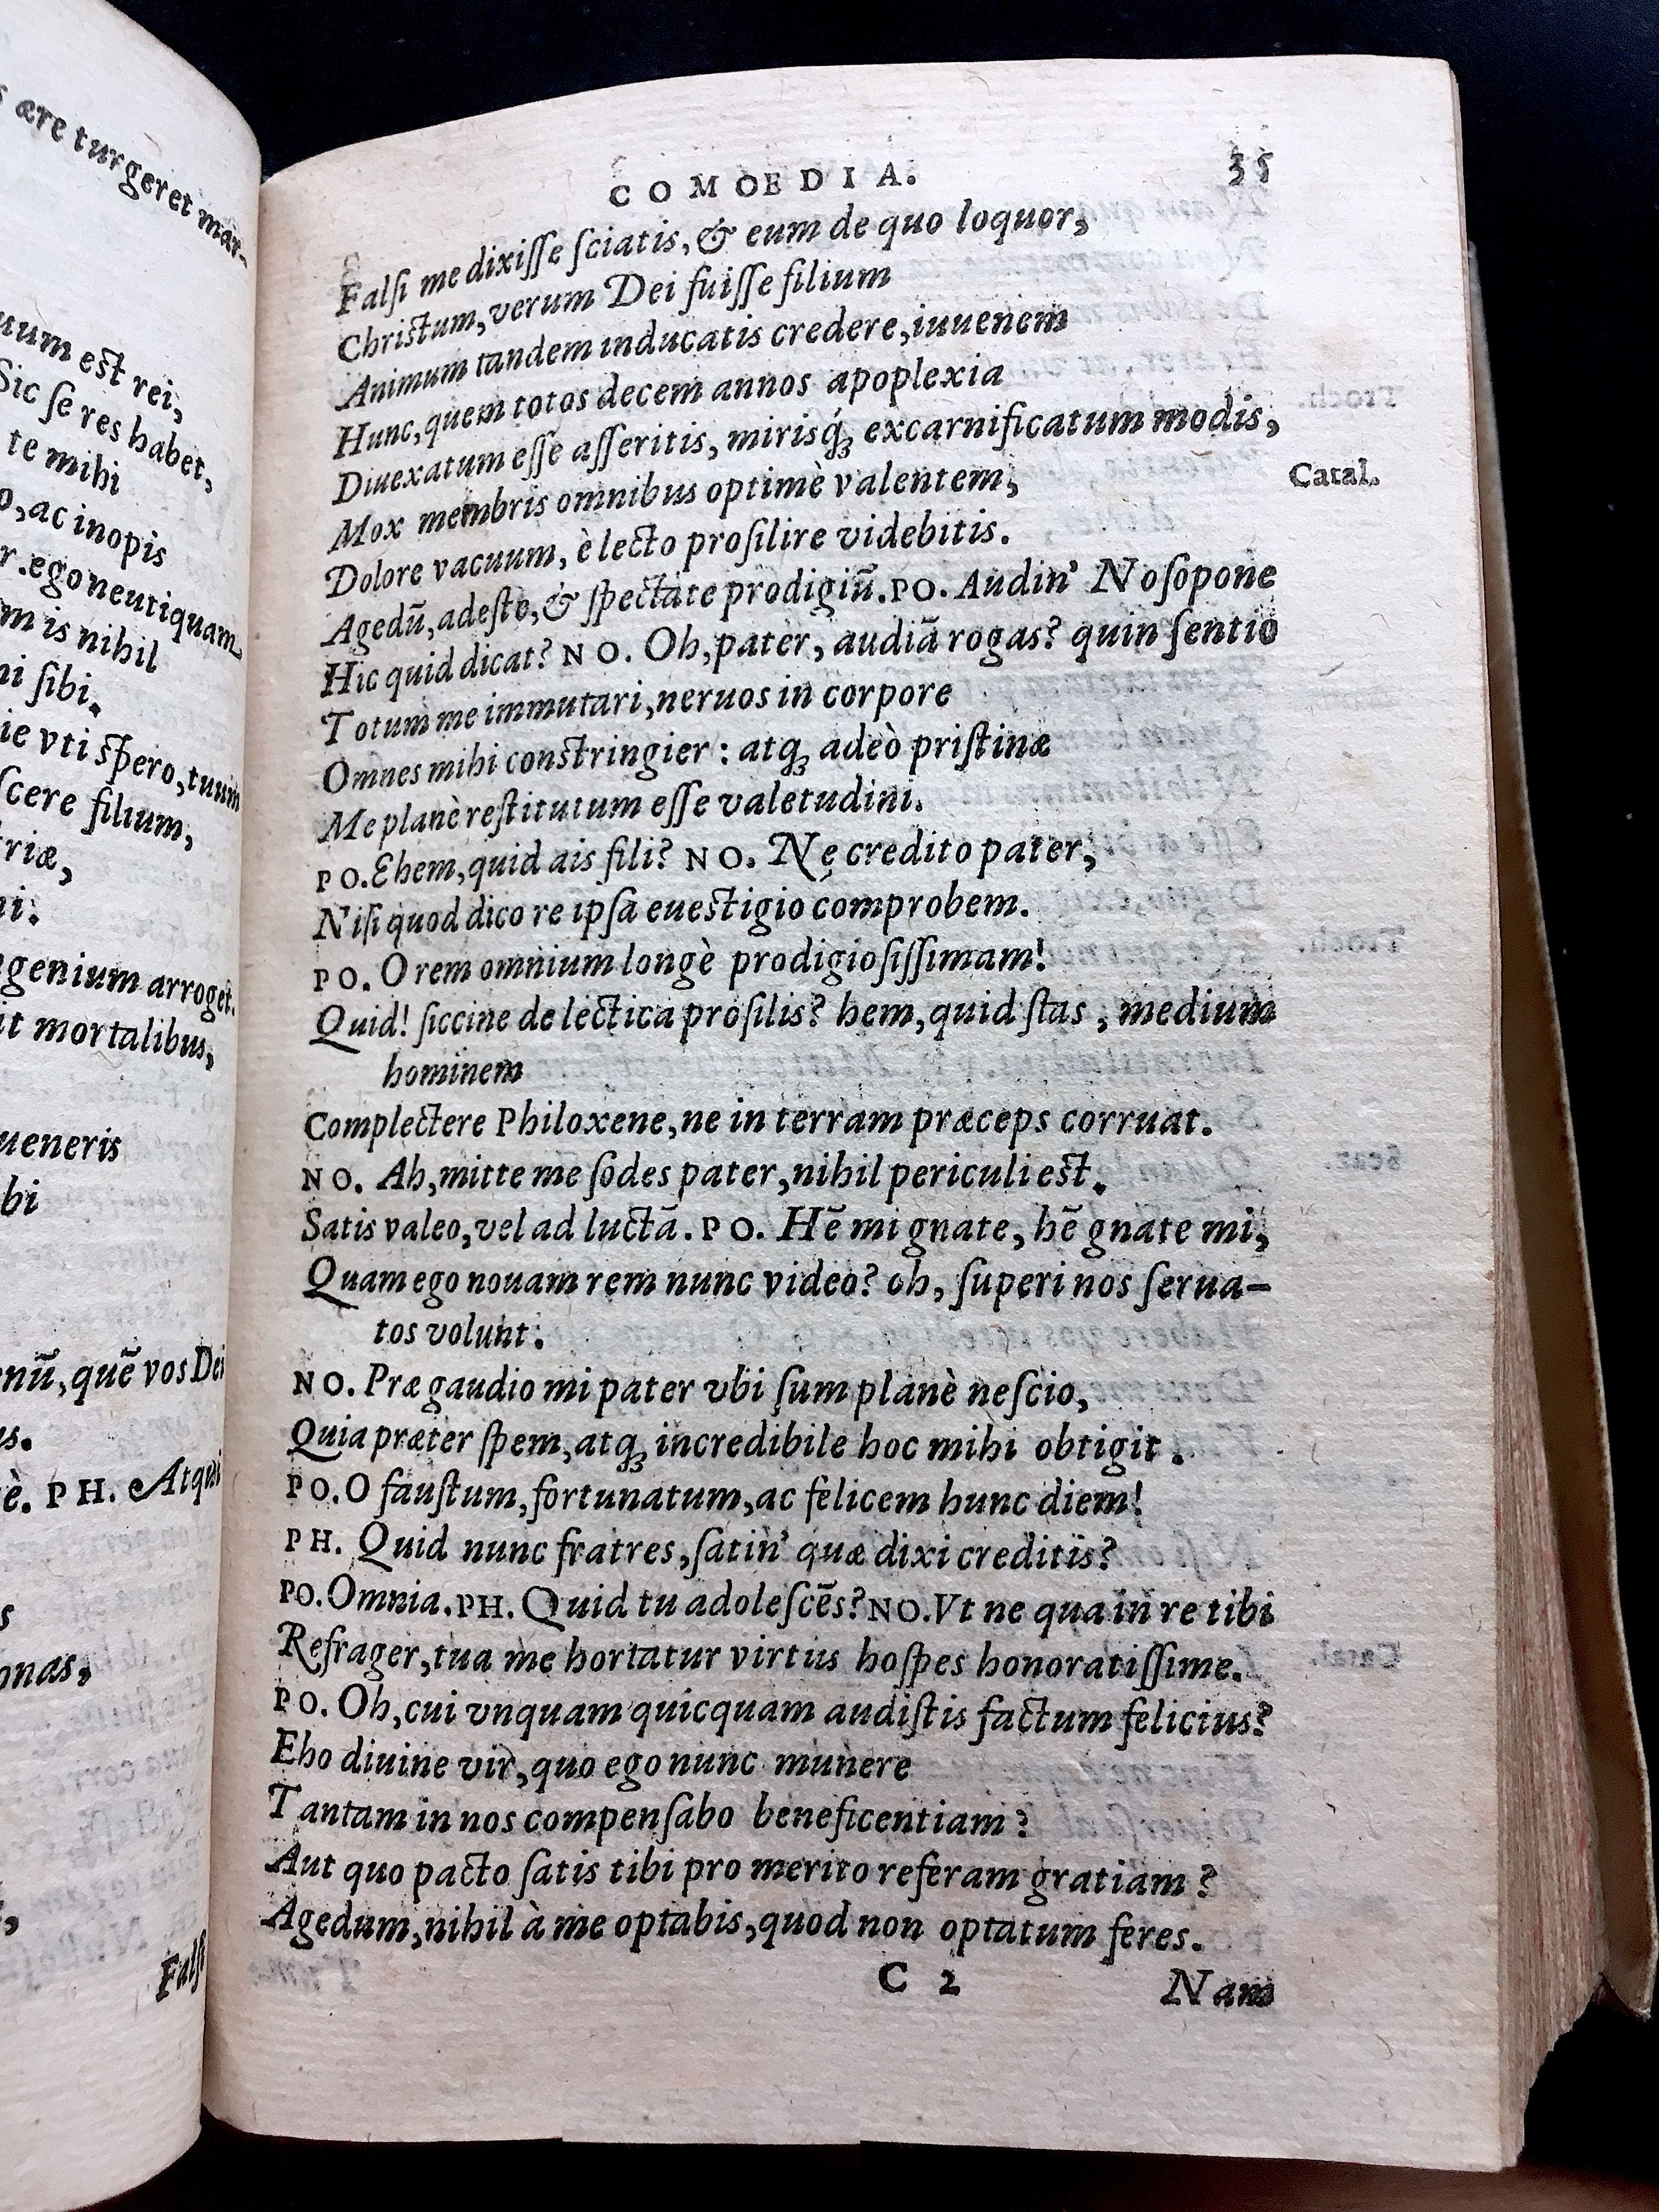 ære turgeret mar-
uum est rei,
Sic ſe res habet,
te mihi
ac inopis
r. ego neutiquam
m is nihil
ni ſibi.
ie vti ſpero, tuum
ſcere filium,
triæ,
ni:
genium arroget.
it mortalibus,
ueneris
bi
nũ, quẽ vos Dei
us.
è. PH. Atqui
s
onas,
Falſi
COMOEDIA. 35
Falſi me dixiſſe ſciatis, & eum de quo loquor,
Chriſtum, verum Dei fuiſſe filium
Animum tandem inducatis credere, iuuenem
Hunc, quem totos decem annos apoplexia
Diuexatum eſſe aſſeritis, mirisq́; excarnificatum modis,
Mox membris omnibus optimè valentem, Catal.
Dolore vacuum, è lecto proſilire videbitis.
Agedũ, adeſte, & ſpectate prodigiũ. PO. Audin' Noſopone
Hic quid dicat? NO. Oh, pater, audiã rogas? quin ſentio
Totum me immutari, neruos in corpore
Omnes mihi conſtringier: atq; adeò priſtinæ
Me planè reſtitutum eſſe valetudini.
PO. Ehem, quid ais fili? NO. Ne credito pater,
Niſi quod dico re ipſa eueſtigio comprobem.
PO. O rem omnium longè prodigioſiſſimam!
Quid! ſiccine de lectica proſilis? hem, quid ſtas, medium
hominem
Complectere Philoxene, ne in terram præceps corruat.
NO. Ah, mitte me ſodes pater, nihil periculi eſt.
Satis valeo, vel ad luctã. PO. Hẽ mi gnate, hẽ gnate mi,
Quam ego nouam rem nunc video? oh, ſuperi nos ſerua-
tos volunt.
NO. Præ gaudio mi pater vbi ſum planè neſcio,
Quia præter ſpem, atq; incredibile hoc mihi obtigit.
PO. O fauſtum, fortunatum, ac felicem hunc diem!
PH. Quid nunc fratres, ſatin' quæ dixi creditis?
PO. Omnia. PH. Quid tu adoleſcẽs? NO. Vt ne qua in re tibi
Refrager, tua me hortatur virtus hoſpes honoratiſſime.
PO. Oh, cui vnquam quicquam audiſtis factum felicius?
Eho diuine vir, quo ego nunc munere
Tantam in nos compenſabo beneficentiam?
Aut quo pacto ſatis tibi pro merito referam gratiam?
Agedum, nihil à me optabis, quod non optatum feres.
C 2 Nam